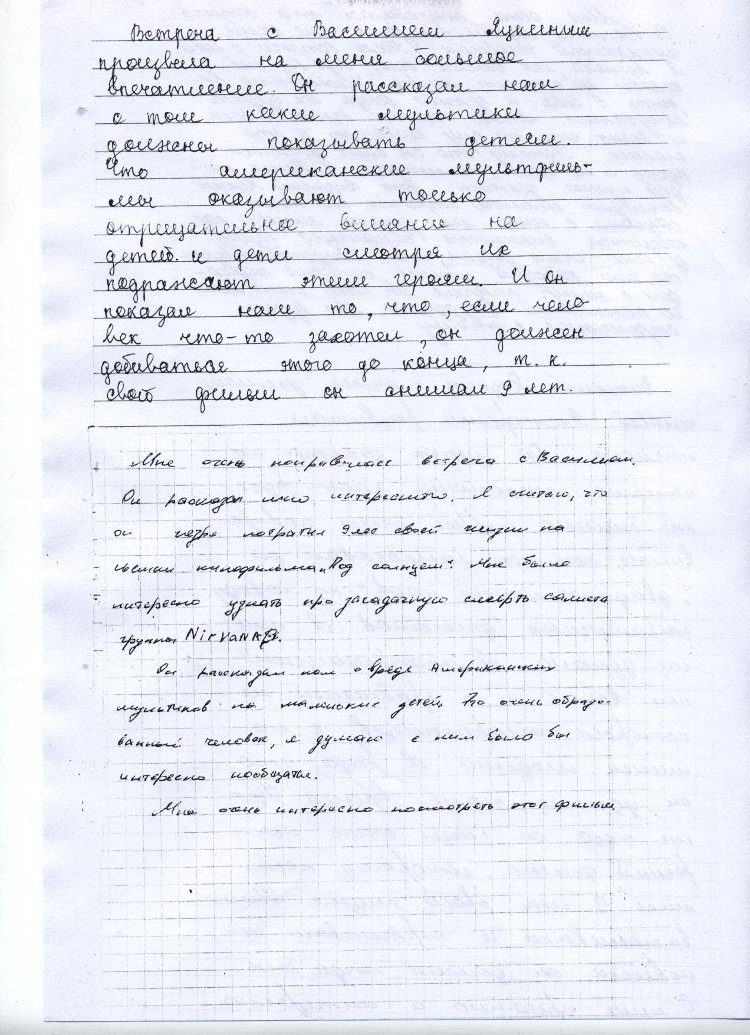 Встреча с Василием Яцкиным
произвела на меня большое
впечатление. Он рассказал нам
о том какие мультики
должны показывать детям.
Что американские мультфиль-
мы оказывают только
отрицательное влияние на
детей. и дети смотря их
подражают этим героям. И он
показал нам то, что, если чело
век что-то захотел, он должен
добиваться этого до конца, т. к.
свой фильм он снимал 9 лет.
Мне очень понравилась встреча с Василием.
Он рассказал много интересного. Я считаю, что
он не зря потратил 9 лет своей жизни на
съемки кинофильма „Под солнцем“. Мне было
интересно узнать про загадочную смерть солиста
группы NirvaNA.
Он рассказал нам о вреде Американских
мультиков на маленьких детей. Это очень образо
ванный человек, я думаю с ним было бы
интересно пообщаться.
Мне очень интересно посмотреть этот фильм.